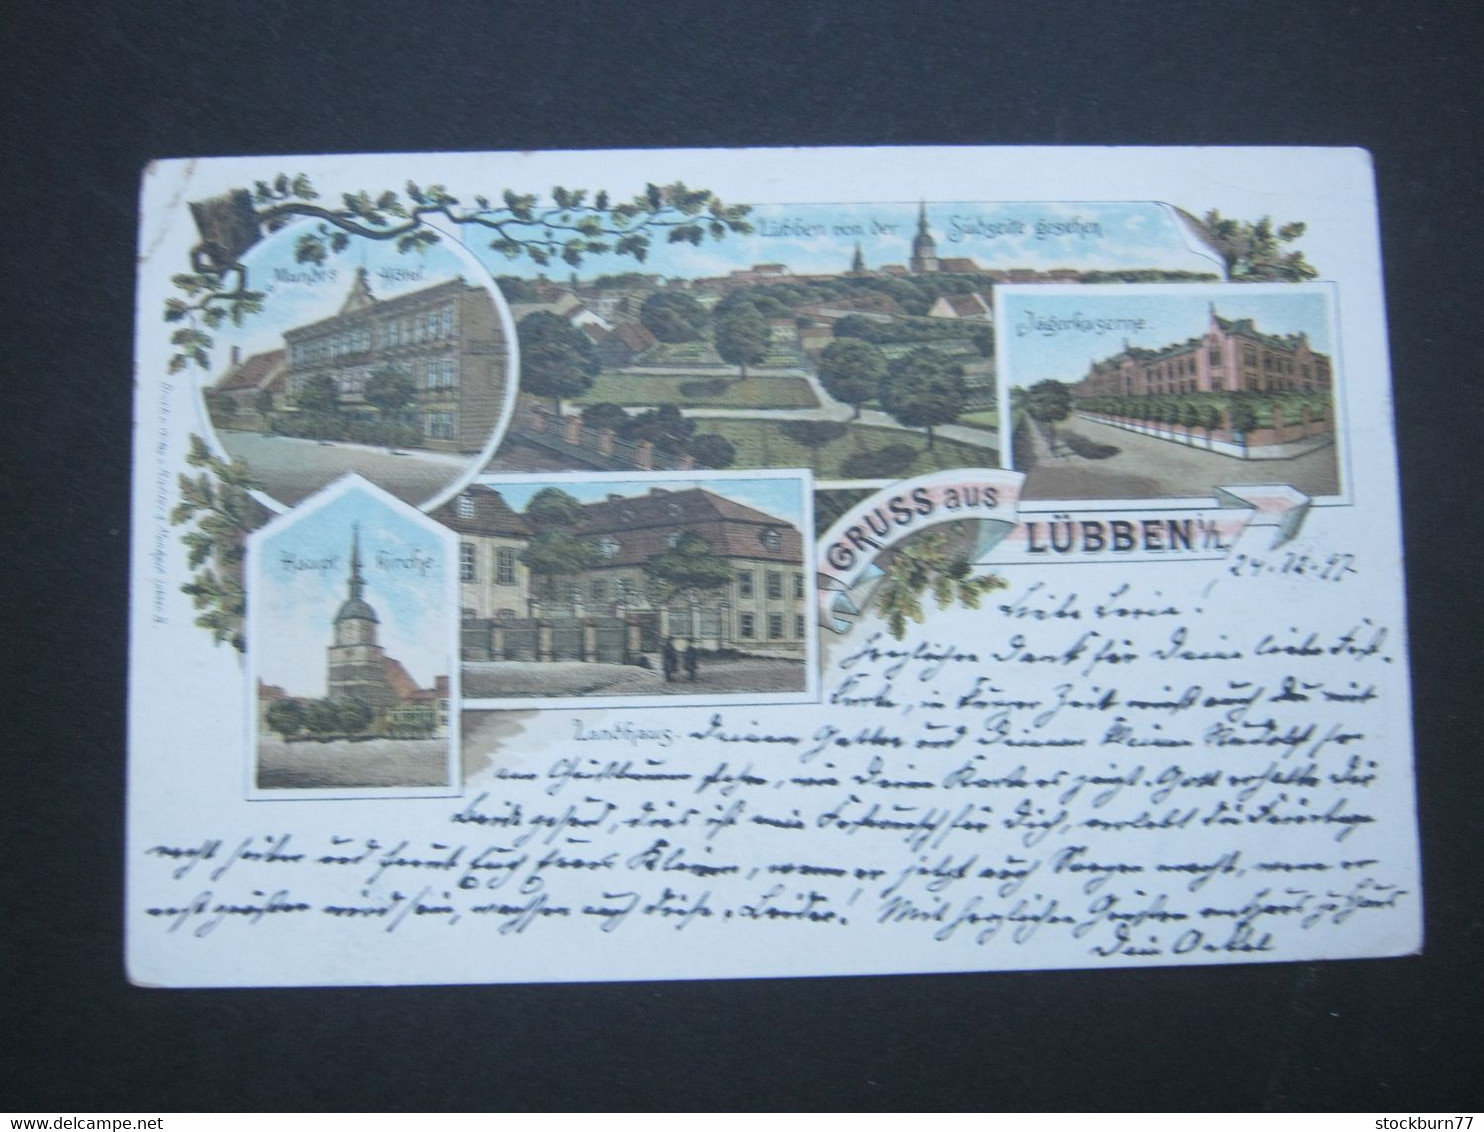 Lübben von der Südseite gesehen.
Hôtel
Jägerkaserne.
Haupt Kirche.
GRUSS aus
LÜBBEN i/L.
Landhaus.
24.12.97
Liebe
Herzlichen Dank für Deine liebe Fest-
karte, in kurzer Zeit wirst auch Du mit
Deinem Gatten und Deinem kleinen Rudolf so
am stehn, wie Deine Karte es zeigt. Gott erhalte Dir
Beide gesund, dies ist mein Festwunsch für Dich, verlebt die Feiertage
recht heiter und freut Euch Eures Kleinen, wenn er jetzt auch Sorgen macht, wenn er
erst größer wird sein, wachsen auch diese, Leider! Mit herzlichen Grüßen von Haus zu Haus
Dein Onkel
www.delcampe.net
stockburn77